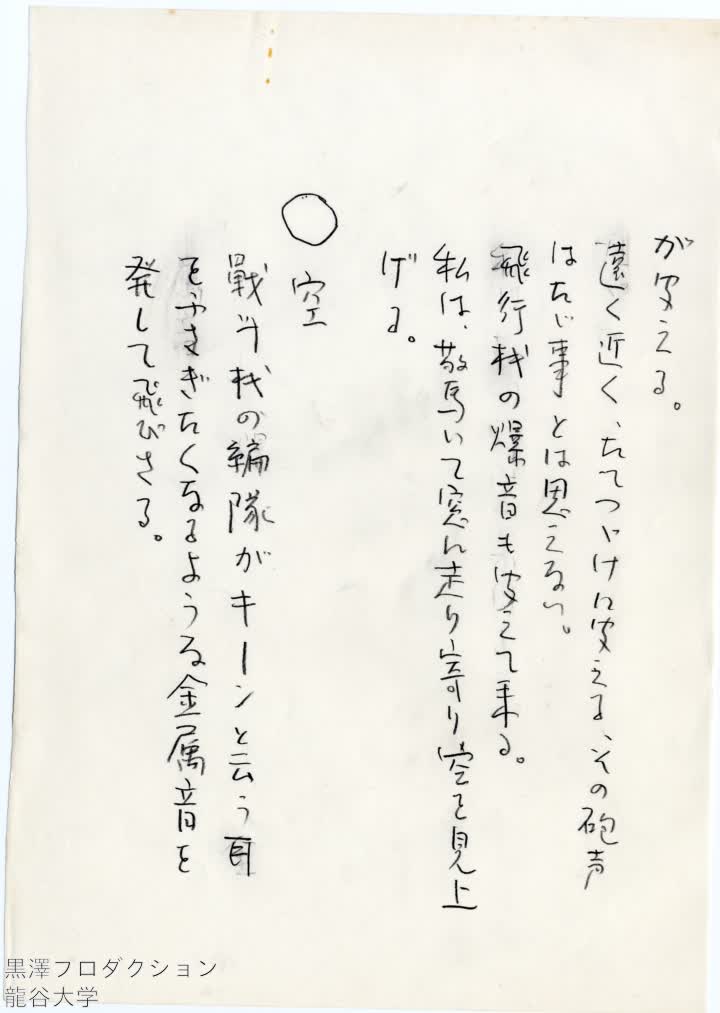 が聞える。
遠く近く、たてつゞけに聞える、その砲声
はたゞ事とは思えない。
飛行機の爆音も聞えて来る。
私は、驚いて窓に走り寄り空を見上
げる。
○ 空
戦斗機の編隊がキーンと云う耳
をふさぎたくなるような金属音を
発して飛びさる。
黒澤プロダクション
龍谷大学